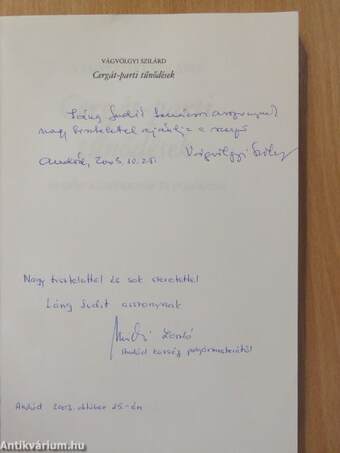 VÁGVÖLGYI SZILÁRD
Cergát-parti tűnődések
Láng Judit asszonynak
nagy tisztelettel ajánlja a szerző
Andód, 2003.10.25. Vágvölgyi Szilárd
Nagy tisztelettel és sok szeretettel
Láng Judit asszonynak
László
Andód község polgármesterétől
Andód 2003. október 25-én
Antikvárium.hu